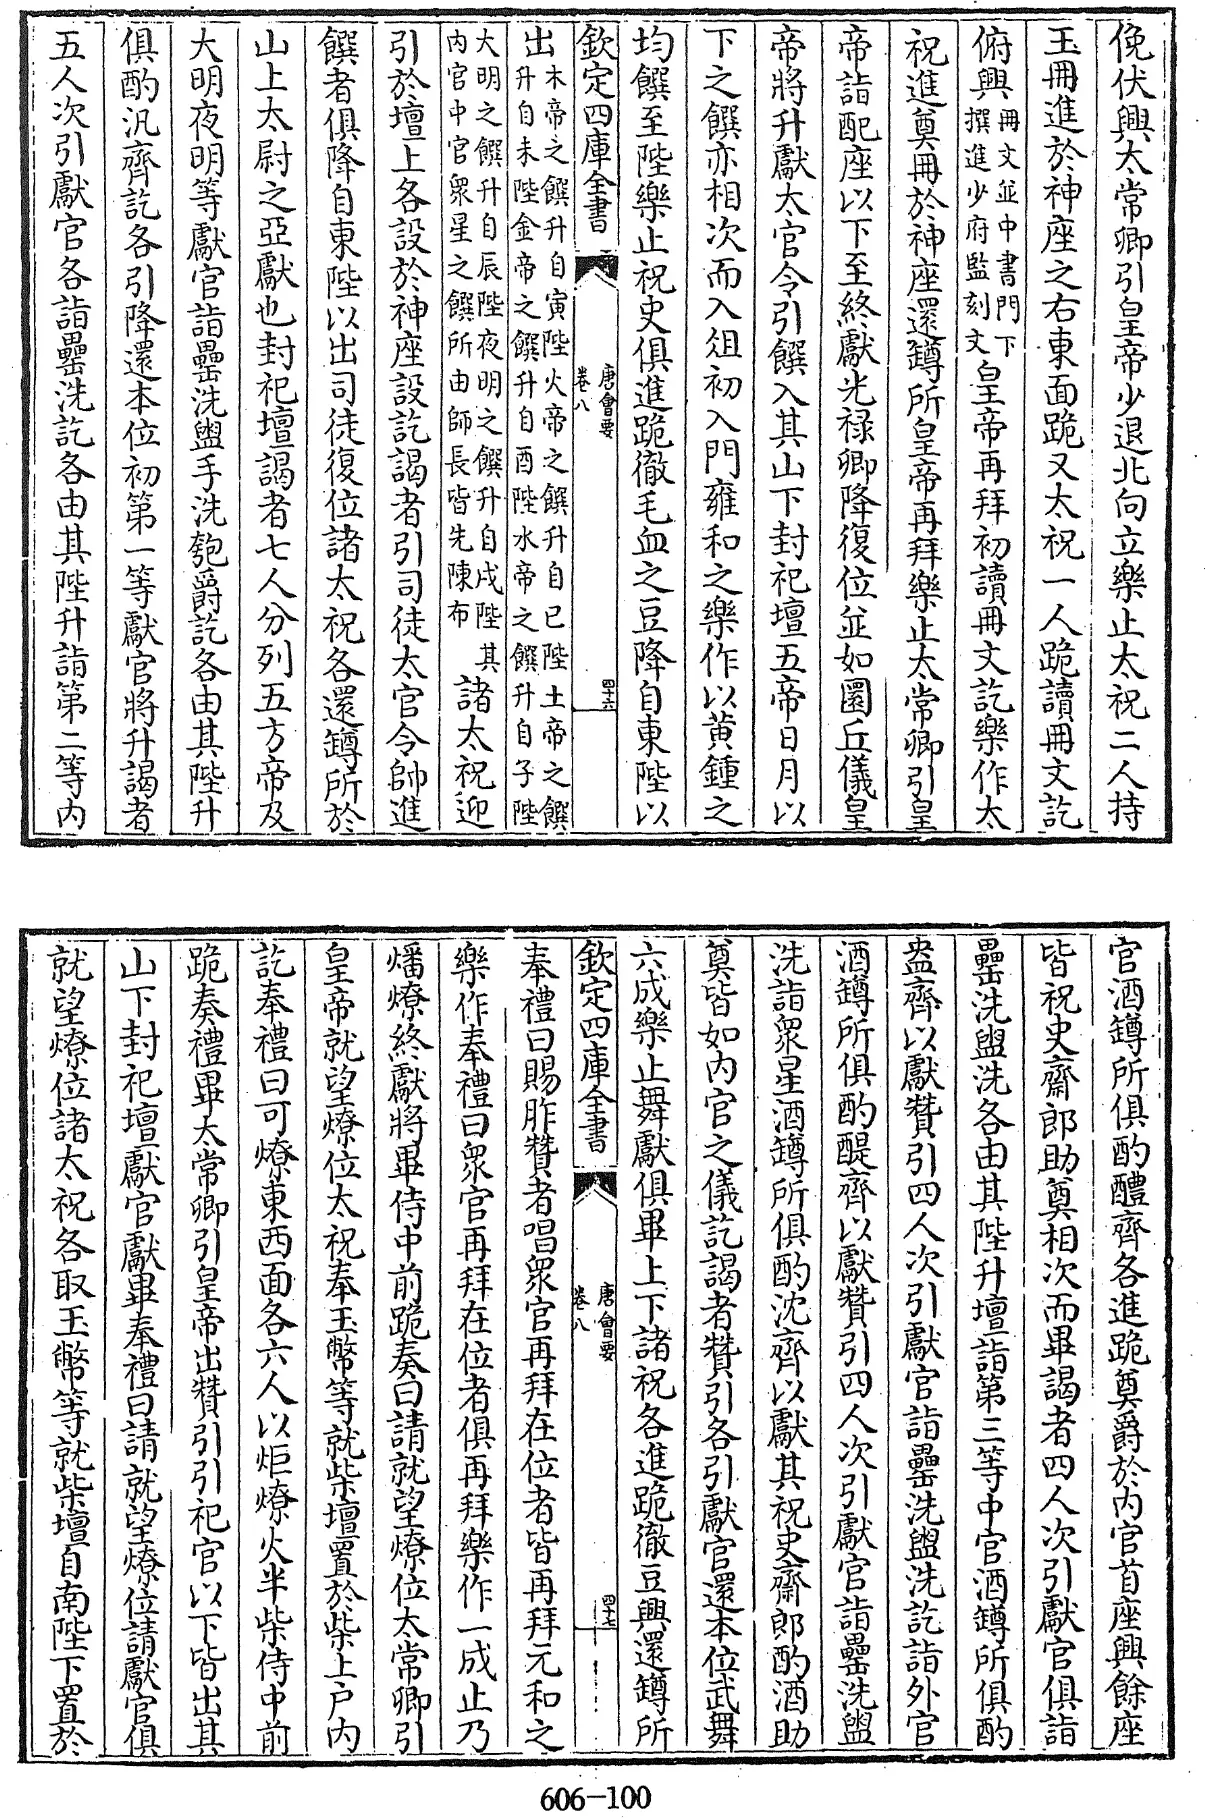 俛伏興太常卿引皇帝少退北向立樂止太祝二人持
玉冊進於神座之右東面跪又太祝一人跪讀冊文訖
俯興冊文並中書門下撰進少府監刻文皇帝再拜初讀冊文訖樂作太
祝進奠冊於神座還罇所皇帝再拜樂止太常卿引皇
帝詣配座以下至終獻光禄卿降復位並如圜丘儀皇
帝將升獻太官令引饌入其山下封祀壇五帝日月以
下之饌亦相次而入俎初入門雍和之樂作以黄鍾之
均饌至陛樂止祝史俱進跪徹毛血之豆降自東陛以
欽定四庫全書
唐會要
卷八
四十六
出木帝之饌升自寅陛火帝之饌升自巳陛土帝之饌
升自未陛金帝之饌升自酉陛水帝之饌升自子陛
大明之饌升自辰陛夜明之饌升自戌陛其
内官中官衆星之饌所由師長皆先陳布諸太祝迎
引於壇上各設於神座設訖謁者引司徒太官令帥進
饌者俱降自東陛以出司徒復位諸太祝各還罇所於
山上太尉之亞獻也封祀壇謁者七人分列五方帝及
大明夜明等獻官詣罍洗盥手洗匏爵訖各由其陛升
俱酌汎齊訖各引降還本位初第一等獻官將升謁者
五人次引獻官各詣罍洗訖各由其陛升詣第二等内
官酒罇所俱酌醴齊各進跪奠爵於内官首座興餘座
皆祝史齋郎助奠相次而畢謁者四人次引獻官俱詣
罍洗盥洗各由其陛升壇詣第三等中官酒罇所俱酌
盎齊以獻贊引四人次引獻官詣罍洗盥洗訖詣外官
酒罇所俱酌醍齊以獻贊引四人次引獻官詣罍洗盥
洗詣衆星酒罇所俱酌沈齊以獻其祝史齋郎酌酒助
奠皆如内官之儀訖謁者贊引各引獻官還本位武舞
六成樂止舞獻俱畢上下諸祝各進跪徹豆興還罇所
欽定四庫全書
唐會要
卷八
四十七
奉禮曰賜胙贊者唱衆官再拜在位者皆再拜元和之
樂作奉禮曰衆官再拜在位者俱再拜樂作一成止乃
燔燎終獻將畢侍中前跪奏曰請就望燎位太常卿引
皇帝就望燎位太祝奉玉幣等就柴壇置於柴上戸内
訖奉禮曰可燎東西面各六人以炬燎火半柴侍中前
跪奏禮畢太常卿引皇帝出贊引引祀官以下皆出其
山下封祀壇獻官獻畢奉禮曰請就望燎位請獻官俱
就望燎位諸太祝各取玉幣等就柴壇自南陛下置於
606-100